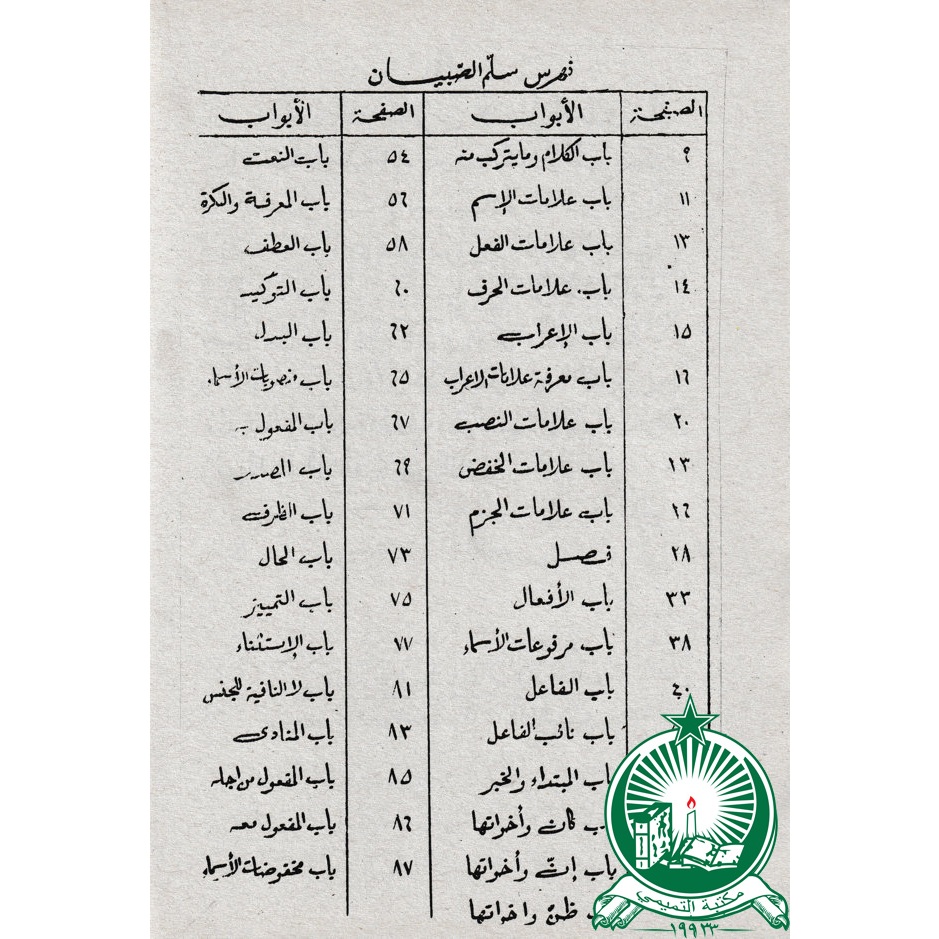 فهرس سلّم الصبيان
الصفحة الأبواب الصفحة الأبواب
٩ باب الكلام وما يتركب منه ٥٤ باب النعت
١١ باب علامات الإسم ٥٦ باب المعرفة والنكرة
١٣ باب علامات الفعل ٥٨ باب العطف
١٤ باب علامات الحرف ٦٠ باب التوكيد
١٥ باب الإعراب ٦٢ باب البدل
١٦ باب معرفة علامات الاعراب ٦٥ باب منصوبات الأسماء
٢٠ باب علامات النصب ٦٧ باب المفعول به
١٣ باب علامات الخفض ٦٩ باب المصدر
٢٦ باب علامات الجزم ٧١ باب الظرف
٢٨ فصل ٧٣ باب الحال
٣٣ باب الأفعال ٧٥ باب التمييز
٣٨ باب مرفوعات الأسماء ٧٧ باب الإستثناء
٤٠ باب الفاعل ٨١ باب لا النافية للجنس
باب نائب الفاعل ٨٣ باب المنادى
باب المبتداء والخبر ٨٥ باب المفعول من اجله
باب كان وأخواتها ٨٦ باب المفعول معه
باب إنّ وأخواتها ٨٧ باب مخفوضات الأسماء
ظنّ واخواتها
مكتبة التميمي
١٩٩٣٣